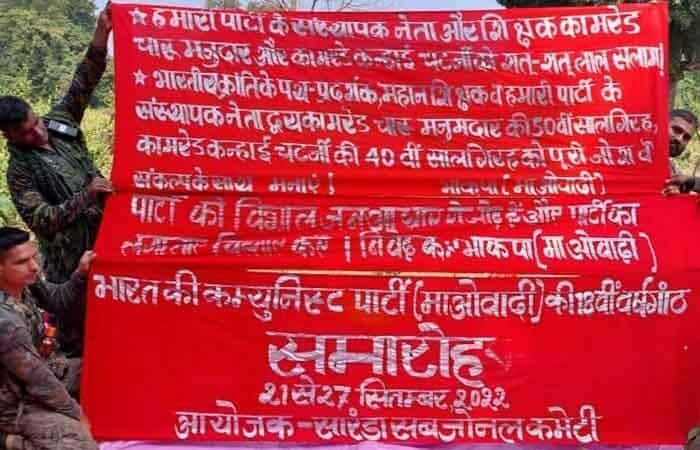 ★ हमारी पार्टी के संस्थापक नेता और शिक्षक कामरेड
चारू मजुदार और कामरेड कन्हाई चटर्जी को शत-शत् लाल सलाम!
★ भारतीय क्रांति के पथ-प्रदर्शक, महान शिक्षक व हमारी पार्टी के
संस्थापक नेता द्वय कामरेड चारू मनुमदार की 50वीं सालगिरह,
कामरेड कन्हाई चटर्जी की 40 वीं सालगिरह को पूरी जोश व
संकल्प के साथ मनाएं! भाकपा (माओवादी)
पार्टी की विशाल और पार्टी का
लगातार करें! भाकपा (माओवादी)
भारत की कम्युनिस्ट पार्टी (माओवादी) की 18वीं वर्षगांठ
समारोह
21 से 27 सितम्बर, 2022
आयोजक - सारंडा सबजोनल कमेटी